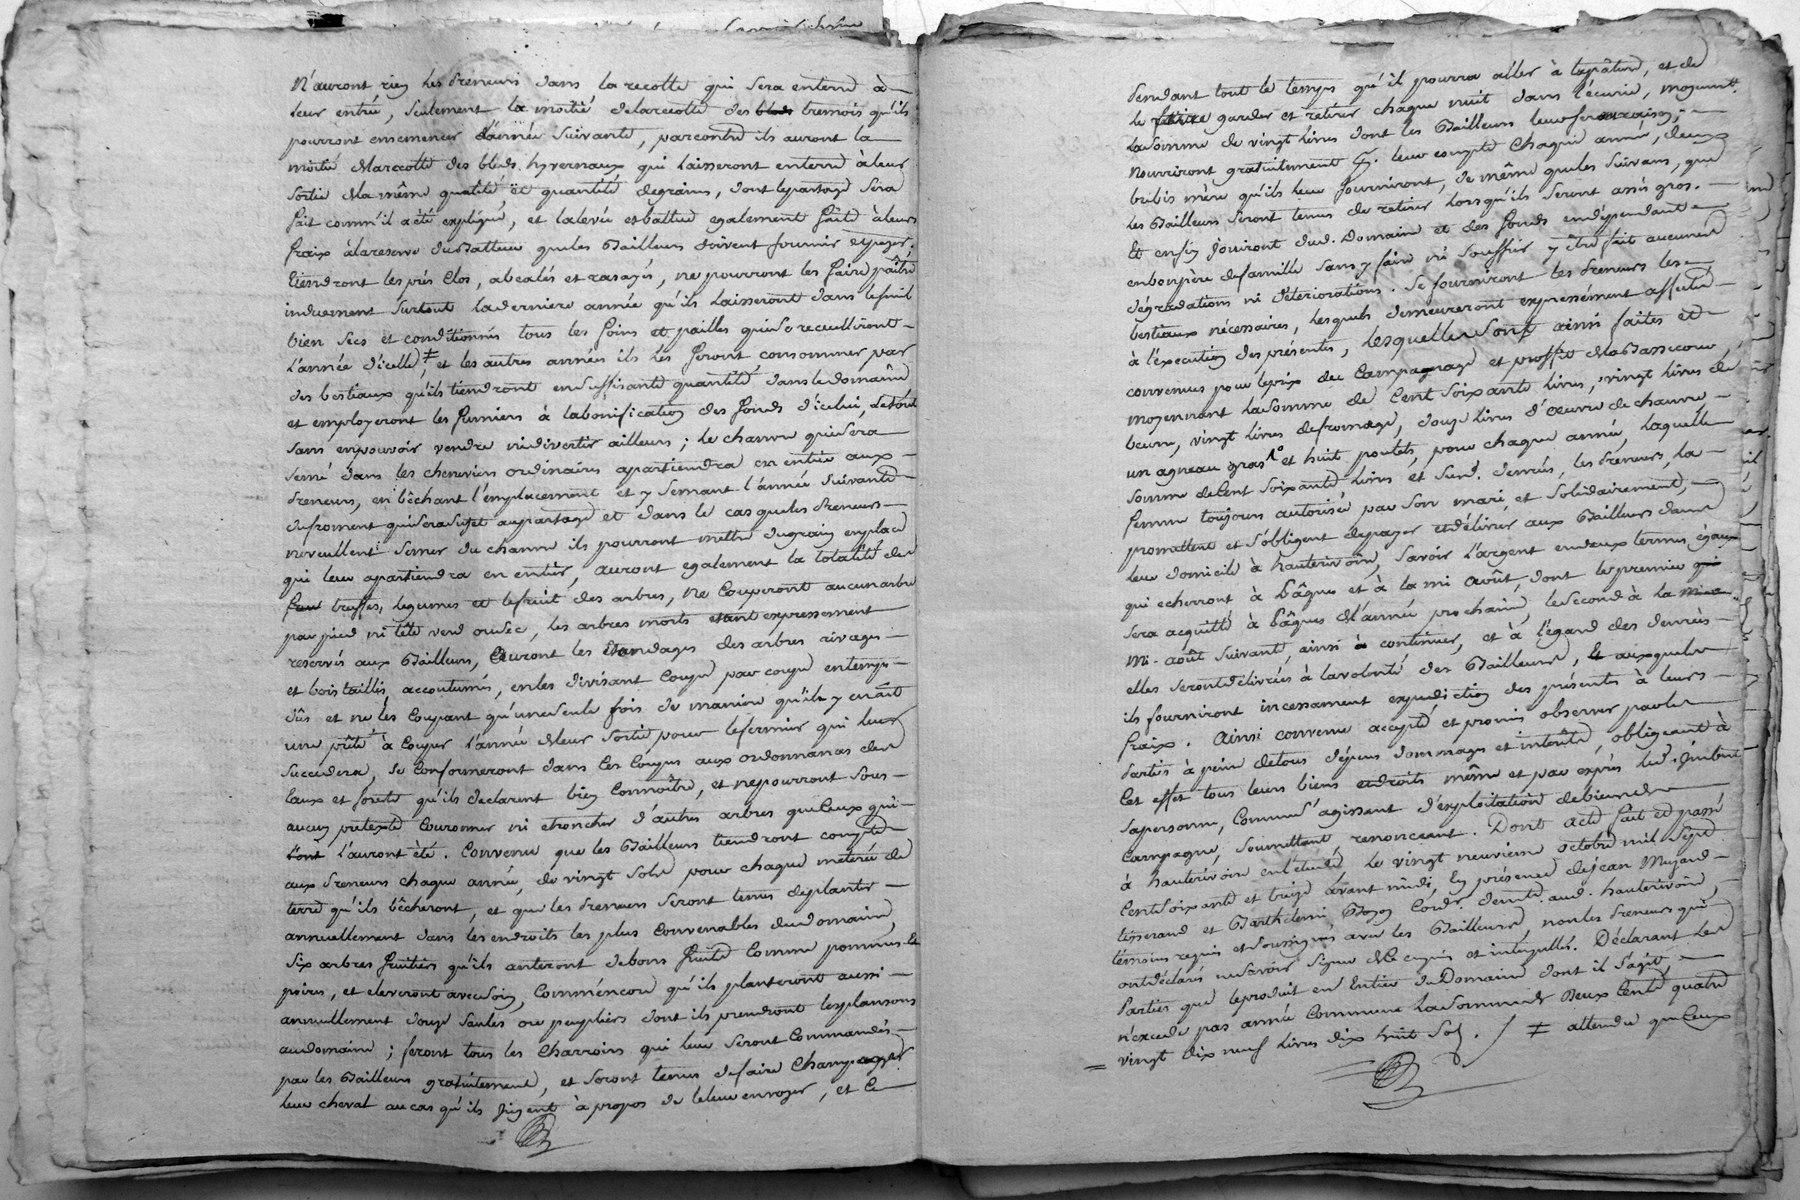 N'auront rien les preneurs dans la recolte qui sera enterre à
leur entrée, seulement la moitié delarecolte des tremois qu'ils
pourront ensemencer l'année suivante, parcontre ils auront la
moitié delarecolte des bleds hyvernaux qui laisseront enterre àleur
sortie dela même qualité et quantité degrains, dont lepartage sera
fait comm'il a été expliqué, et lalevée et battue egalement faite àleurs
fraix àlareserve dubatteur queles Bailleurs doivent fournir et payer.
tiendront les prés clos, abealés et rasayés, ne pourront les faire paître
induement surtout laderniere année qu'ils laisseront dans lefenil
bien secs et conditionnés tous les foins et pailles quise recueilliront
l'année d'icelle ≠, et les autres années ils les feront consommer par
des bestiaux qu'ils tiendront ensuffisante quantité dans ledomaine
et employeront les fumiers à labonification des fonds d'icelui, letout
sans enpouvoir vendre nidivertir ailleurs ; le chanvre quisera
semé dans les cheneviers ordinaires apartiendra en entier aux
preneurs, en bêchant l'emplacement et y semant l'année suivante
dufroment quiserasujet aupartage et dans le cas queles preneurs
neveullent semer du chanvre ils pourront mettre dugrain enplace
qui leur apartiendra en entier, auront egalement la totalité des
truffes, legumes et lefruit des arbres, ne couperont aucun arbre
par pied ni tête verd ousec, les arbres morts etant expressement
reservés aux Bailleurs, auront les élandages des arbres rivages
et bois taillis, accoutumés, enles divisant coupe par coupe entemps
dûs et ne les coupant qu'uneseule fois de maniere qu'ils y enait
une prête à couper l'année deleur sortie pour lefermier qui leur
succedera, se conformeront dans les coupes aux ordonnances des
Eaux et forets qu'ils declarent bien connoître, et nepourront sous
aucun pretexte couronner ni etroncher d'autres arbres queceux qui
l'auront été. Convenu que les Bailleurs tiendront compte
aux preneurs chaque année, de vingt sols pour chaque meterée de
terre qu'ils bêcheront, et que les preneurs seront tenus deplanter
annuellement dans les endroits les plus convenables dudomaine,
six arbres fruitiers qu'ils anteront debons fruits comme pommes et
poires, et eleveront avecsoin, comm'encore qu'ils planteront aussi
annuellement douze saules ou peupliers dont ils prendront lesplansons
audomaine ; feront tous les charrois qui leur seront commandés
par les Bailleurs gratuitement, et seront tenus defaire champayer
leur cheval au cas qu'ils jugent à propos de leleur envoyer, et ce
pendant tout le temps qu'il pourra aller à lapâture, et de
le garder et retirer chaque nuit dans l'écurie, moyent.
lasomme de vingt livres dont les Bailleurs leurferont raison ;
nourriront gratuitement leur compte chaque année, deux
brebis mère qu'ils leur fourniront, de même queles suivans, que
les Bailleurs seront tenus de retirer lorsqu'ils seront assés gros.
Et enfin jouiront dud. Domaine et des fonds endépendant
enbonpère defamille sans y faire ni souffrir y être fait aucunes
dégradations ni deteriorations. Se fourniront les preneurs les
bestiaux nécessaires, lesquels demeureront expressément affectés
à l'execution des présentes, lesquelles sont ainsi faites et
convenues pour leprix du campagnage et proffit delaBassecour,
moyennant lasomme de Cent soixante livres, vingt livres de
beurre, vingt livres defromage, douze livres d'oeuvre de chanvre
un agneau gras et huit poulets, pour chaque année, laquelle
somme deCent soixante livres et susd. denrées, les preneurs, la
femme toujours autorisée par son mari, et solidairement,
promettent et s'obligent depayer etdélivrer aux Bailleurs dans
leur domicile à hauterivoire, savoir l'argent endeux termes égaux
qui echerront à Pâques et à la mi août, dont lepremier
sera acquitté à Pâques de l'année prochaine, lesecond à la
mi-août suivante, ainsi à continuer, et à l'égard des denrées
elles serontdélivrées à lavolonté des Bailleurs, auxquels
ils fourniront incessament expedition des présentes à leurs
fraix. Ainsi convenu accepté et promis observer parles
parties à peine detous dépens dommages et intérêts, obligeant à
cet effet tous leurs biens et droits même et par exprès led. Jimbert
sapersonne, comme s'agissant d'exploitation debiens de
Campagne, soumettant, renonceant. Dont acte fait et passé
à hauterivoire enl'étude le vingt neuvieme octobre mil sept
centsoixante et treize avant midi, En présence deJean Muzard
tisserand et Barthelemi Bazon Cordr. demt. aud. hauterivoire,
témoins requis et soussignés avec les Bailleurs, nonles preneurs qui
ontdéclarés nesavoir signer de ce enquis et interpellés. Déclarant les
Parties que leproduit en Entier duDomaine dont il s'agit,
n'excede pas année commune lasomme de deux Cents quatre
= vingt dix neuf livres dix huit sols. / ≠ attendu queCeux